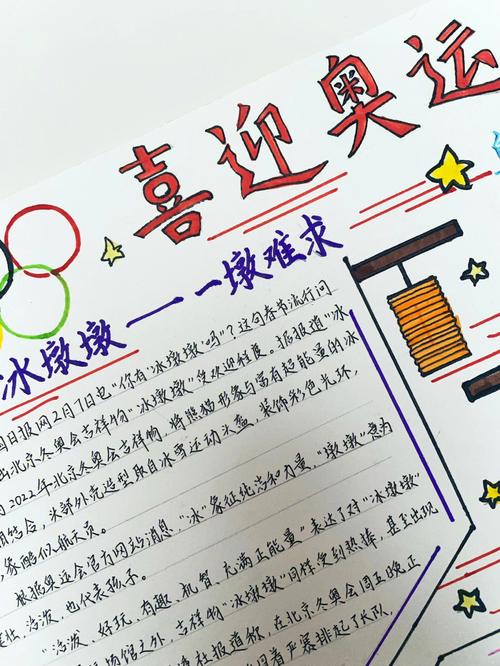 喜迎奥运
冰墩墩——一墩难求
国日报网2月7日电"你有'冰墩墩'吗"?这句春节流行问
出北京冬奥会吉祥物"冰墩墩"受欢迎程度。据报道"冰
为2022年北京冬奥会吉祥物,将熊猫形象与富有超能量的冰
相结合,头部外壳造型取自冰雪运动头盔,装饰彩色光环,
整体酷似航天员。
根据奥运会官方网站消息,"冰"象征纯洁和力量,"墩墩"意为
健壮、活泼,也代表孩子。
"活泼、好玩、有趣、机智、充满正能量"表达了对"冰墩墩"
场馆之外,吉祥物"冰墩墩"同样受到热捧,甚至出现
社报道称,在北京冬奥会周五晚正
冒着严寒排起了长队,